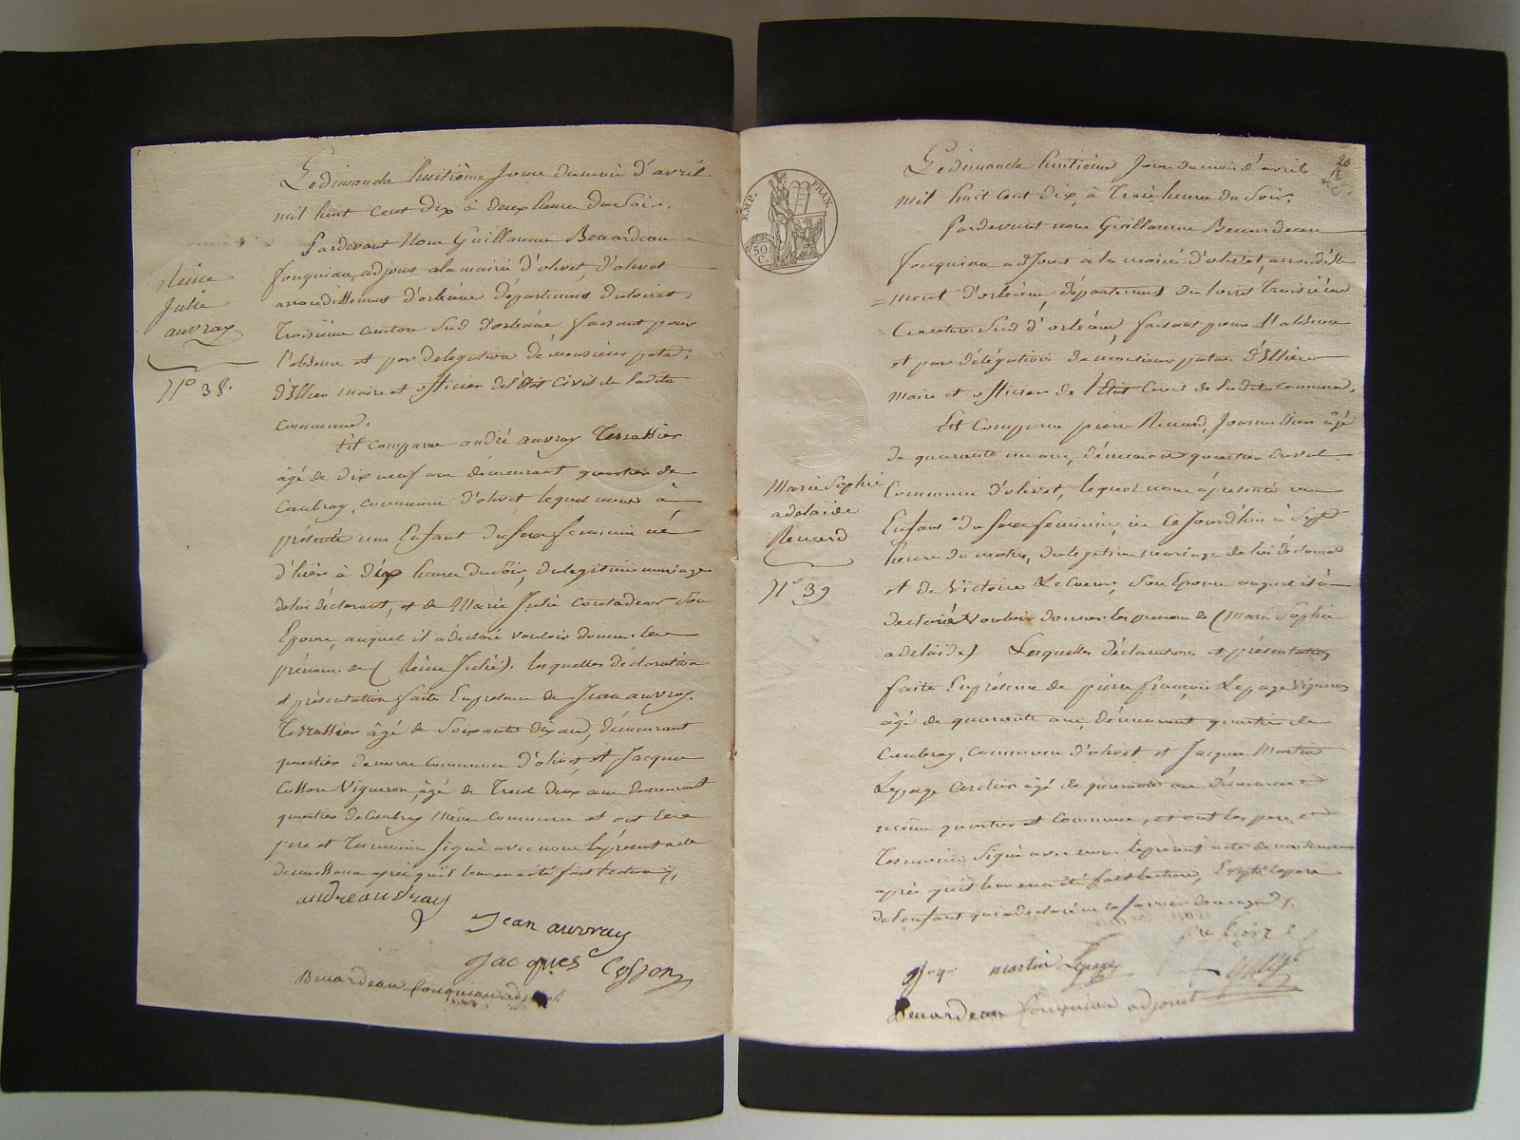 Reine
Julie
auvray
N° 38.
Le dimanche huitième Jour du mois d'avril
mil huit cent dix à deux heure du Soir.
Pardevant Nous Guillaume Beuardeau
fouquiau adjoint a la mairie d'olivet, d'olivet
arrondissement d'orléans département du loiret,
Troisième canton Sud d'orléans, faisant pour
l'absence et par delegation de monsieur
d'Illiers maire et officier de l'Etat Civil de Ladite
commune,
Est comparu andré auvray Terrassier
âgé de dix neuf ans demeurant quartier de
Caubray, commune d'olivet lequel nous à
présenté une Enfant du Sexe feminin né
d'hier à dix heures du Soir, de legitime mariage
de lui déclarant, et de Marie Julie Son
Epouse, auquel il a déclaré vouloir donner les
prénoms de (Reine Julie). lesquelles déclaration
et présentation faite En présence de Jean auvray.
Terrassier âgé de Soixante dix ans, demeurant
quartier commune d'olivet, et Jacques
Cosson Vigneron, âgé de Trente deux ans demeurant
quartier de Caubray Même Commune et ont les
pere et Temoins Signé avec nous le présent acte
de naissance après qu'il leur en a été fait lecture,
andre auvray
Jean auvray
Jacques Cosson
Beuardeau fouquiau adjoint
EMP. FRAN.
50
C.
Marie Sophie
adelaide
Renard
N° 39
Le dimanche huitième Jour du mois d'avril
mil huit cent dix, à Trois heures du Soir,
Pardevant nous Guillaume Beuardeau
fouquiau adjoint a la mairie d'olivet, arrondisse
=ment d'orléans, département du loiret Troisième
Canton Sud d'orléans, faisant pour l'absence
et par délégation de monsieur d'Illiers
maire et officier de l'Etat Civil de ladite commune,
Est Comparu pierre Renard Journallier âgé
de quarante un ans, demeurant quartier
Commune d'olivet, lequel nous à présenté une
Enfant du Sexe feminin, née Ce Jourd'hui à Sept
heures du matin, de legitime mariage de lui declarant
et de Victoire Lecoeur, Son Epouse auquel il à
declaré Vouloir donner les prenoms de (Marie Sophie
adelaide) Lesquelles déclarations et présentation
faite En présence de pierre françois Lepage Vigneron
âgé de quarante ans, demeurant quartier de
Caubray, Commune d'olivet, et Jacques Martin
Lepage Cordier âgé de quarante ans Demeurant
même quartier et Commune, et ont les pere et
Temoins Signé avec nous le présent acte de naissance
après qu'il leur en a été fait lecture, Excepté le pere
de l'enfant qui a déclaré ne le
martin Lepage
Beuardeau fouquiau adjoint